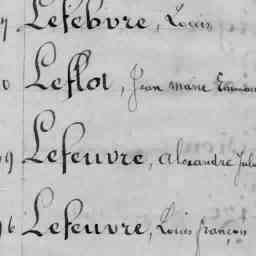 7 Lefebvre, Louis
0 Leflot, Jean Marie
99 Lefeuvre, Alexandre
96 Lefeuvre, Louis françois